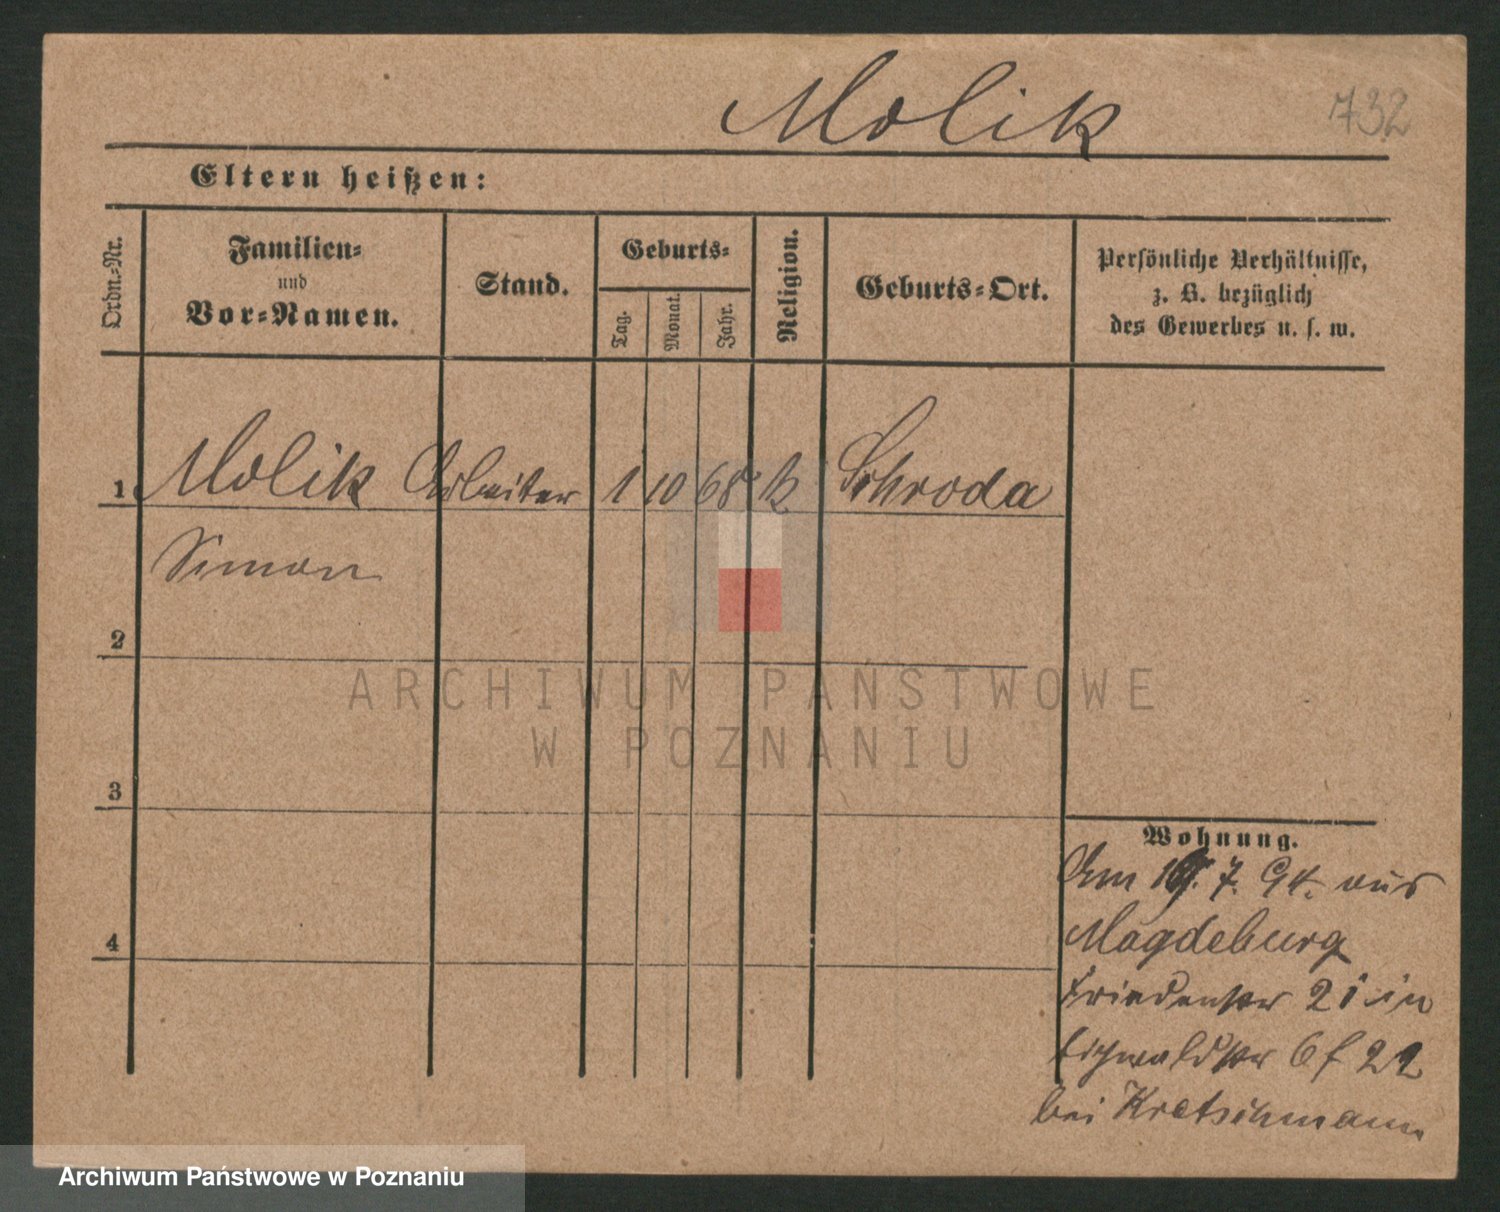 Molik 732
Eltern heißen:
Ordn.-Nr.
Familien-
und
Vor-Namen.
Stand.
Geburts-
Tag.
Monat.
Jahr.
Religion.
Geburts-Ort.
Persönliche Verhältnisse,
z. B. bezüglich
des Gewerbes u. s. w.
1 Molik Arbeiter 1 10 68 k Schroda
Simon
2
ARCHIWUM PAŃSTWOWE
W POZNANIU
3
4
Wohnung.
Am 7. 94. aus
Magdeburg
Friedenstr 21 in
Eichwaldstr 6 f 22
bei Kretschmann
Archiwum Państwowe w Poznaniu